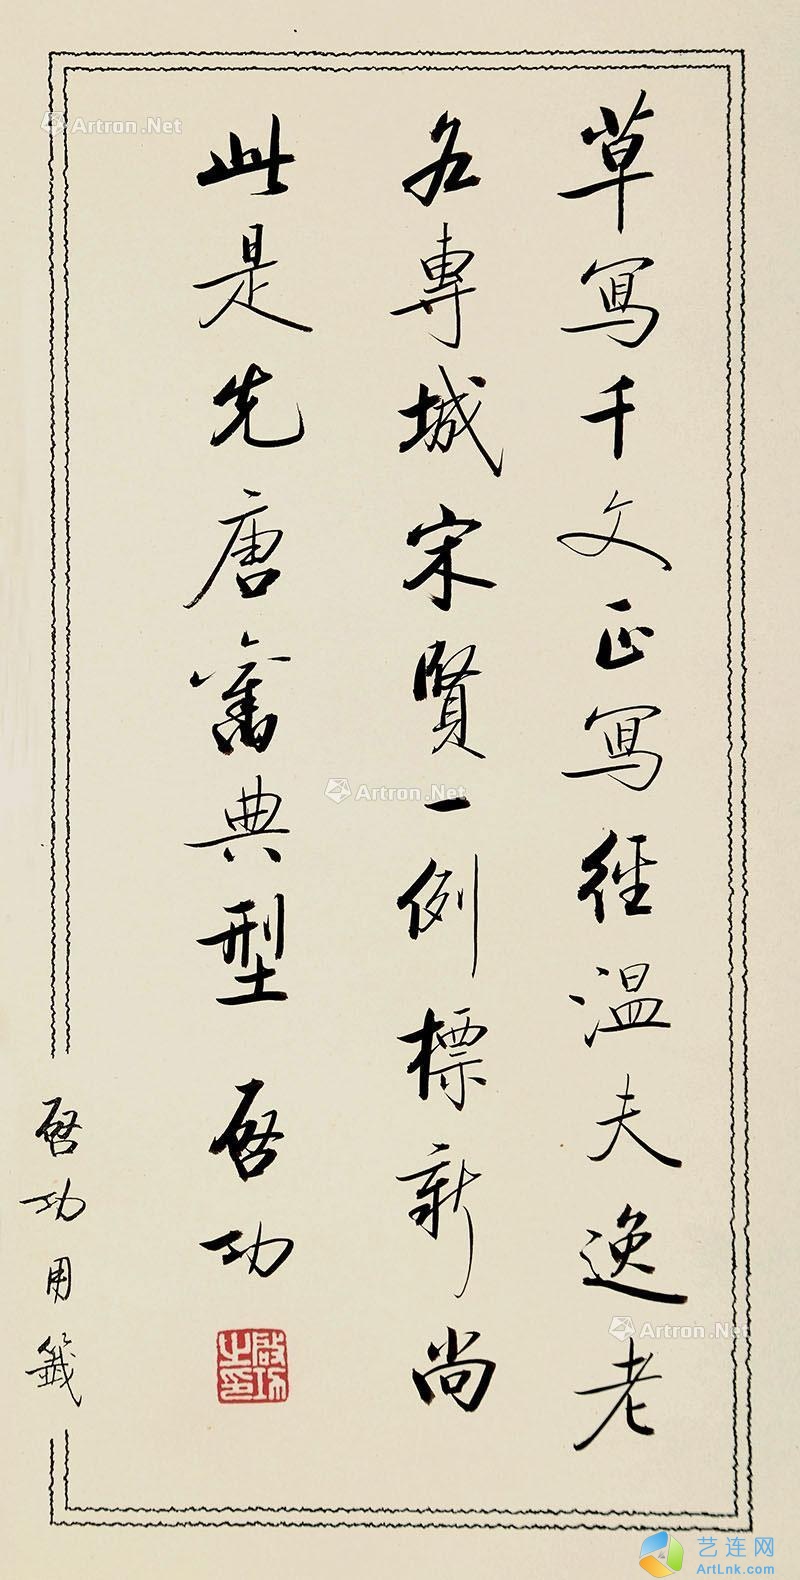 草寫千文正寫經温夫逸老
各專城宋賢一例標新尚
此是先唐舊典型 啓功
啟功之印
啓功用箋
Artron.Net
Artron.Net
Artron.Net
艺连网
ArtLnk.com